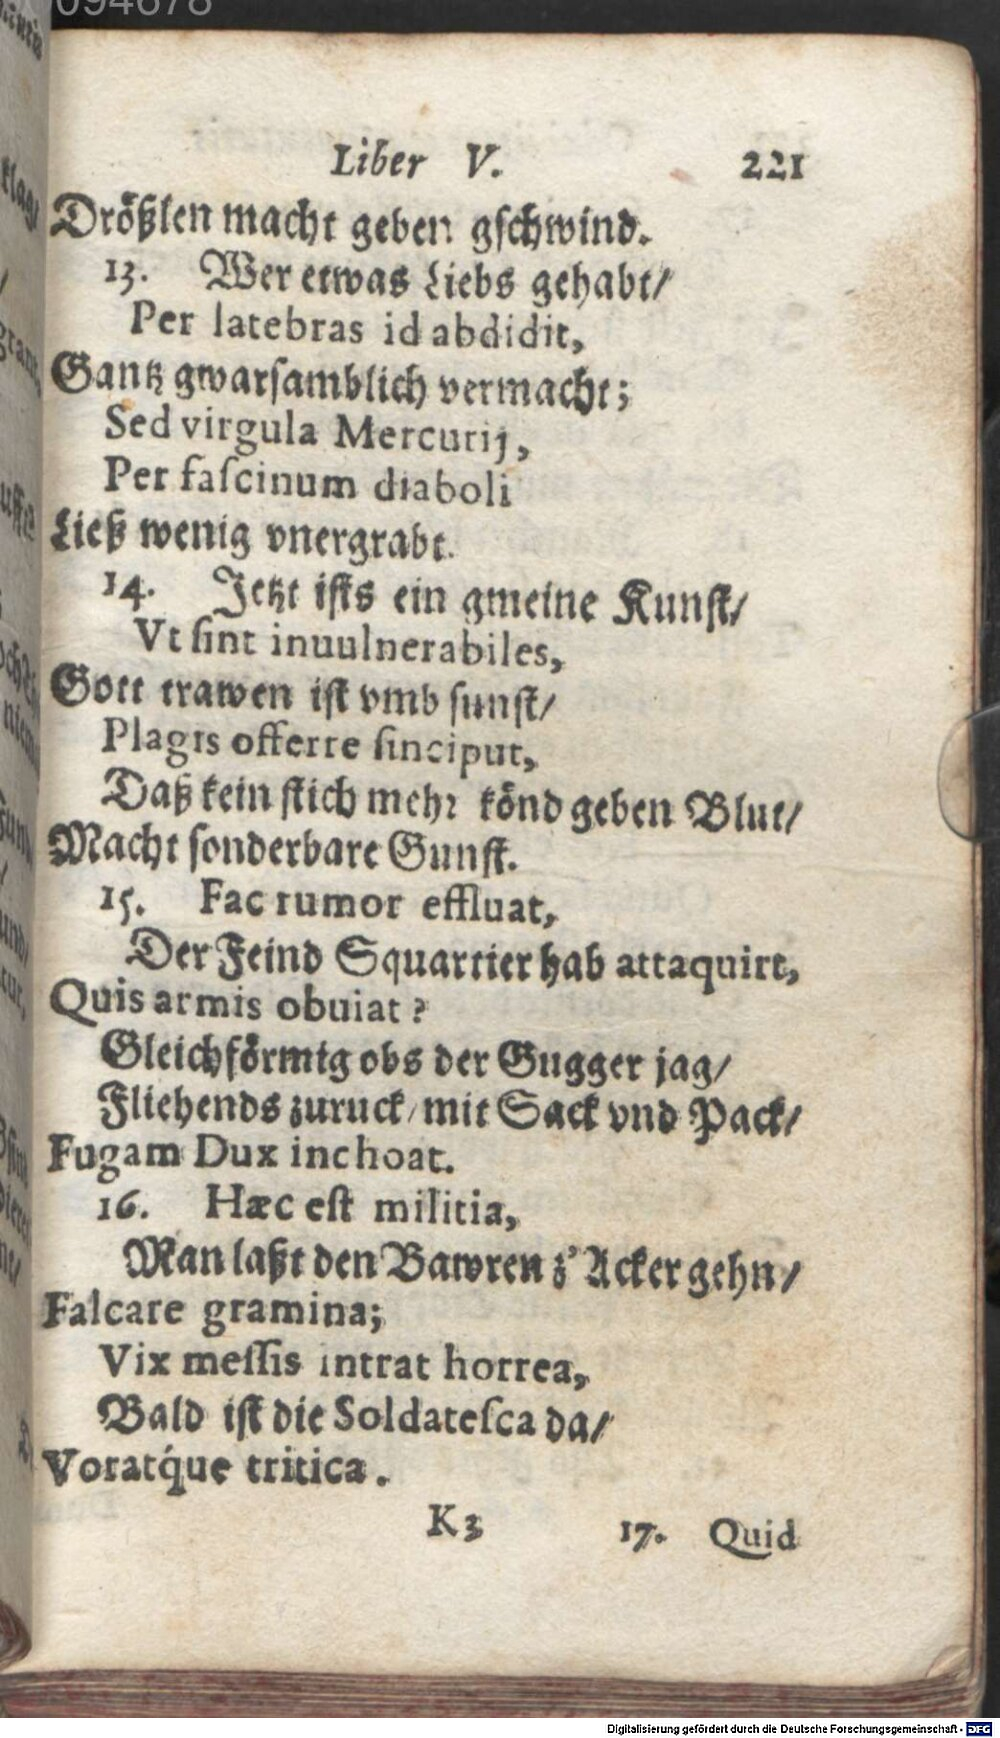 Liber V. 221
Drößlen macht geben gschwind.
13. Wer etwas Liebs gehabt/
Per latebras id abdidit,
Gantz gwarsamblich vermacht;
Sed virgula Mercurij,
Per faſcinum diaboli
Ließ wenig vnergrabt.
14. Jetzt iſts ein gmeine Kunſt/
Vt ſint inuulnerabiles,
Gott trawen iſt vmb ſunſt/
Plagis offerre ſinciput,
Daß kein ſtich mehr könd geben Blut/
Macht ſonderbare Gunſt.
15. Fac rumor effluat,
Der Feind Squartier hab attaquirt,
Quis armis obuiat?
Gleichförmig obs der Gugger jag/
Fliehends zuruck/ mit Sack vnd Pack/
Fugam Dux inchoat.
16. Hæc eſt militia,
Man laßt den Bawren z'Acker gehn/
Falcare gramina;
Vix meſſis intrat horrea,
Bald iſt die Soldateſca da/
Voratq́ue tritica.
K3 17. Quid
Digitalisierung gefördert durch die Deutsche Forschungsgemeinschaft - DFG